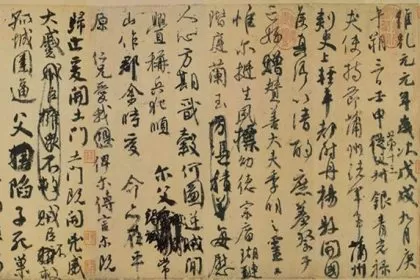 維乾元元年歲次戊戌九月庚
午朔三日壬申從父銀青光祿
夫使持節蒲州諸軍事蒲州
刺史上輕車都尉丹楊縣開國
侯真卿以清酌庶羞祭于
亡姪贈贊善大夫季明之靈
惟爾挺生夙標幼德宗廟瑚璉
階庭蘭玉方憑積善每慰
人心方期戩穀何圖逆賊閒
釁稱兵犯順爾父竭誠常
山作郡余時受命亦在平
原仁兄愛我俾爾傳言爾既
歸止爰開土門土門既開凶威
大蹙賊臣不救
孤城圍逼父陷子死巢